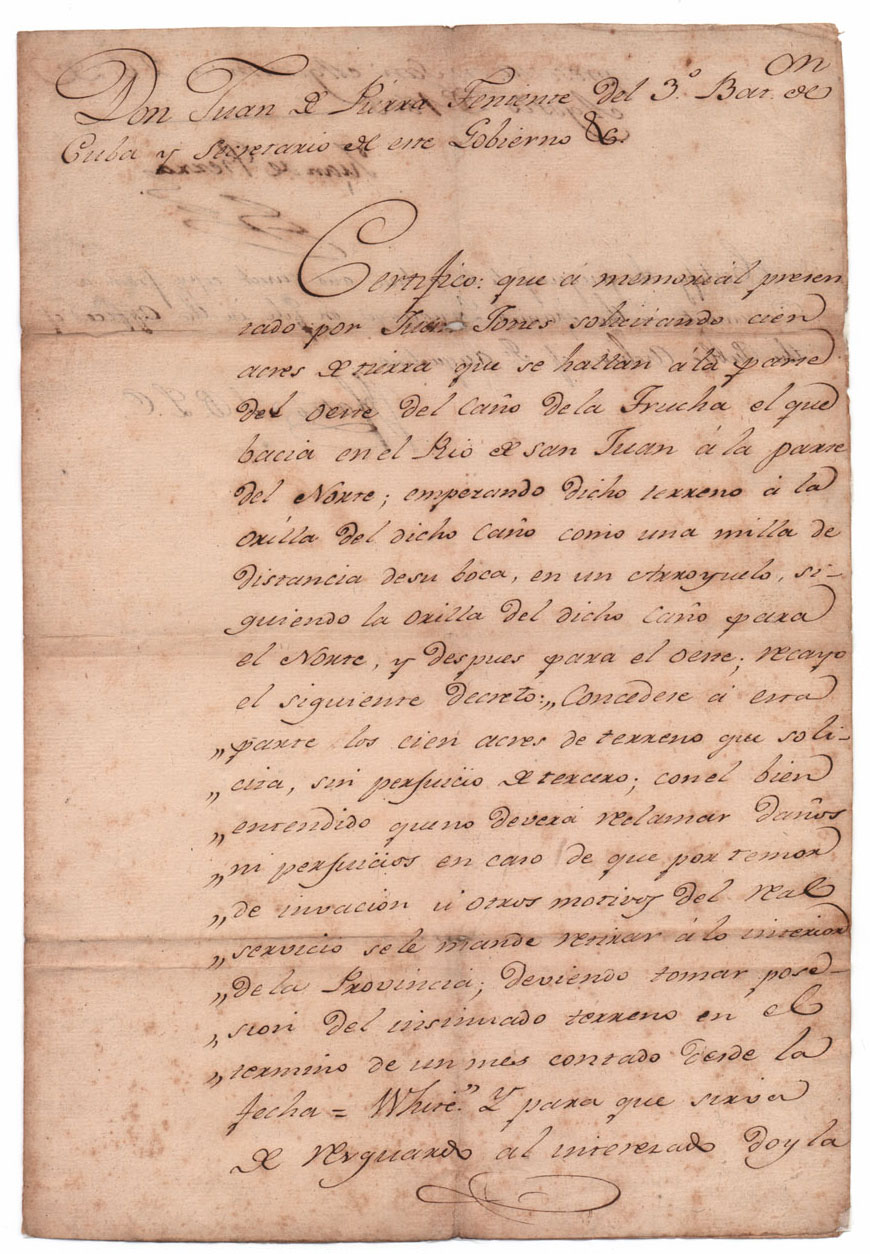 Don Juan de Pierra Teniente del 3.º Bat.on de
Cuba y Secretario de este Gobierno &c.
Certifico: que a memorial presen
tado por Juan Jones solicitando cien
acres de tierra que se hallan á la parte
del Oeste del Caño de la Trucha el que
bacia en el Rio de San Juan á la parte
del Norte; empezando dicho terreno á la
Orilla del dicho Caño como una milla de
distancia de su boca, en un Arroyuelo, si-
guiendo la Orilla del dicho Caño para
el Norte, y despues para el Oeste; recayo
el siguiente Decreto: „Concedese á esta
„parte los cien acres de terreno que soli-
„cita, sin perjuicio de tercero; con el bien
„entendido que no deverá reclamar daños
„ni perjuicios en caso de que por temor
„de invacion ú otros motivos del real
„servicio se le mande retirar á lo interior
„de la Provincia; deviendo tomar pose-
„sion del insinuado terreno en el
„termino de un mes contado desde la
fecha = White." Y para que sirva
de resguardo al interesado doy la